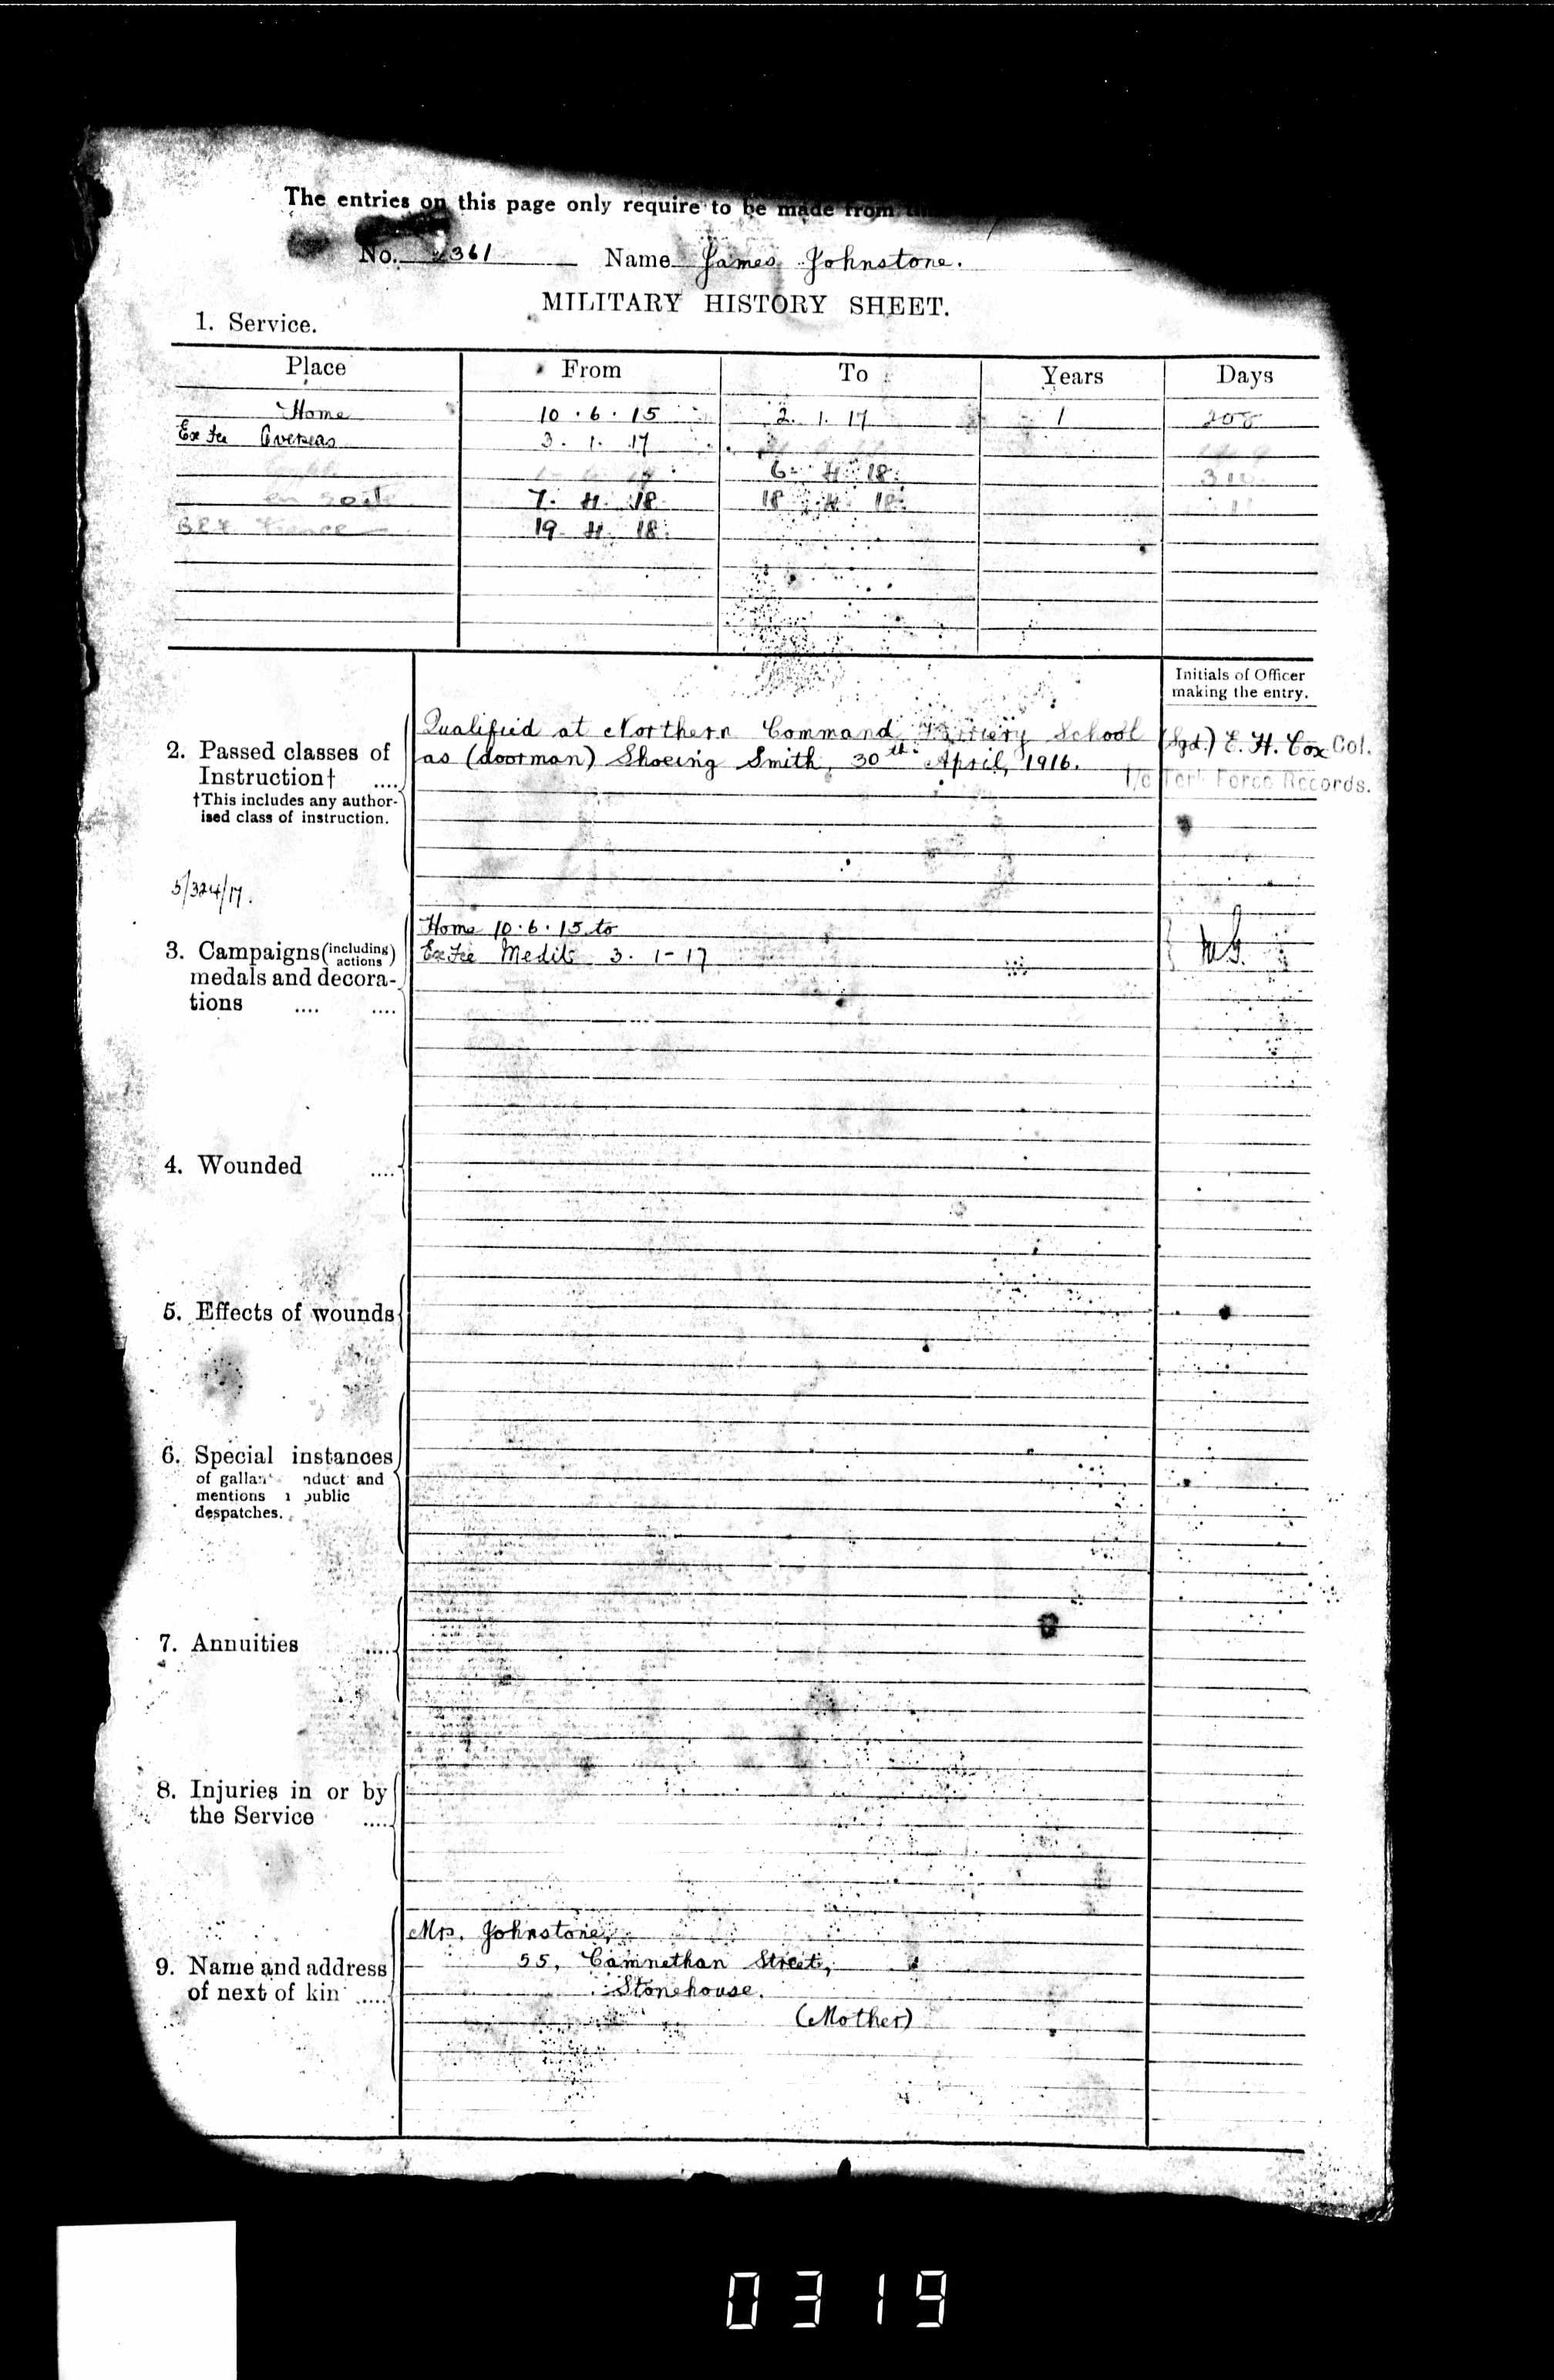 The entries on this page only require to be made from
No. 361 Name James Johnstone.
MILITARY HISTORY SHEET.
1. Service.
Place From To Years Days
Home 10 . 6 . 15 2. 1. 17 1 208
Overseas 3. 1. 17
6 4 18
7. 4. 18 18 4 18
BEF France 19 4 18
Initials of Officer
making the entry.
2. Passed classes of
Instruction† ....
†This includes any author-
ised class of instruction.
Qualified at Northern Command Farriery School
as (doorman) Shoeing Smith, 30th April, 1916.
(Sgd.) E. H. Cox Col.
I/c Terr. Force Records.
5/324/17.
3. Campaigns (including actions)
medals and decora-
tions .... ....
Home 10.6.15 to
Medit 3. 1-17
4. Wounded ....
5. Effects of wounds
6. Special instances
of gallant conduct and
mentions public
despatches.
7. Annuities ....
8. Injuries in or by
the Service ....
9. Name and address
of next of kin .....
Mrs. Johnstone,
55, Camnethan Street,
Stonehouse.
(Mother)
0319